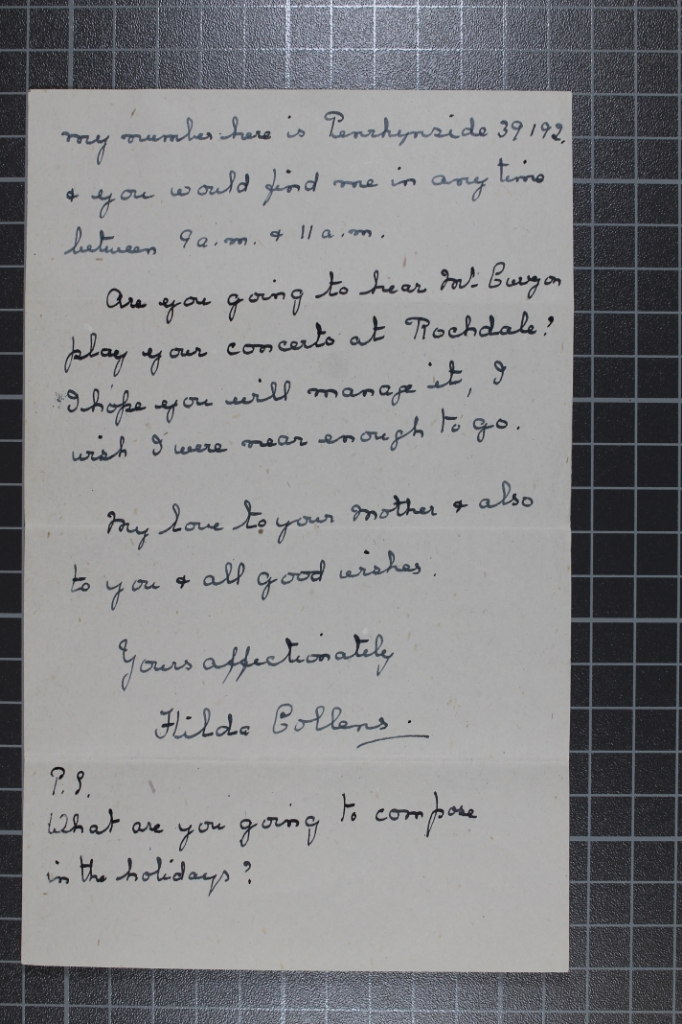 my number here is Penrhynside 39192.
& you would find me in any time
between 9 a.m. & 11 a.m.
Are you going to hear Mr. Curzon
play your concerto at Rochdale?
I hope you will manage it, I
wish I were near enough to go.
My love to your Mother & also
to you & all good wishes.
Yours affectionately
Hilda Collens.
P.S.
What are you going to compose
in the holidays?